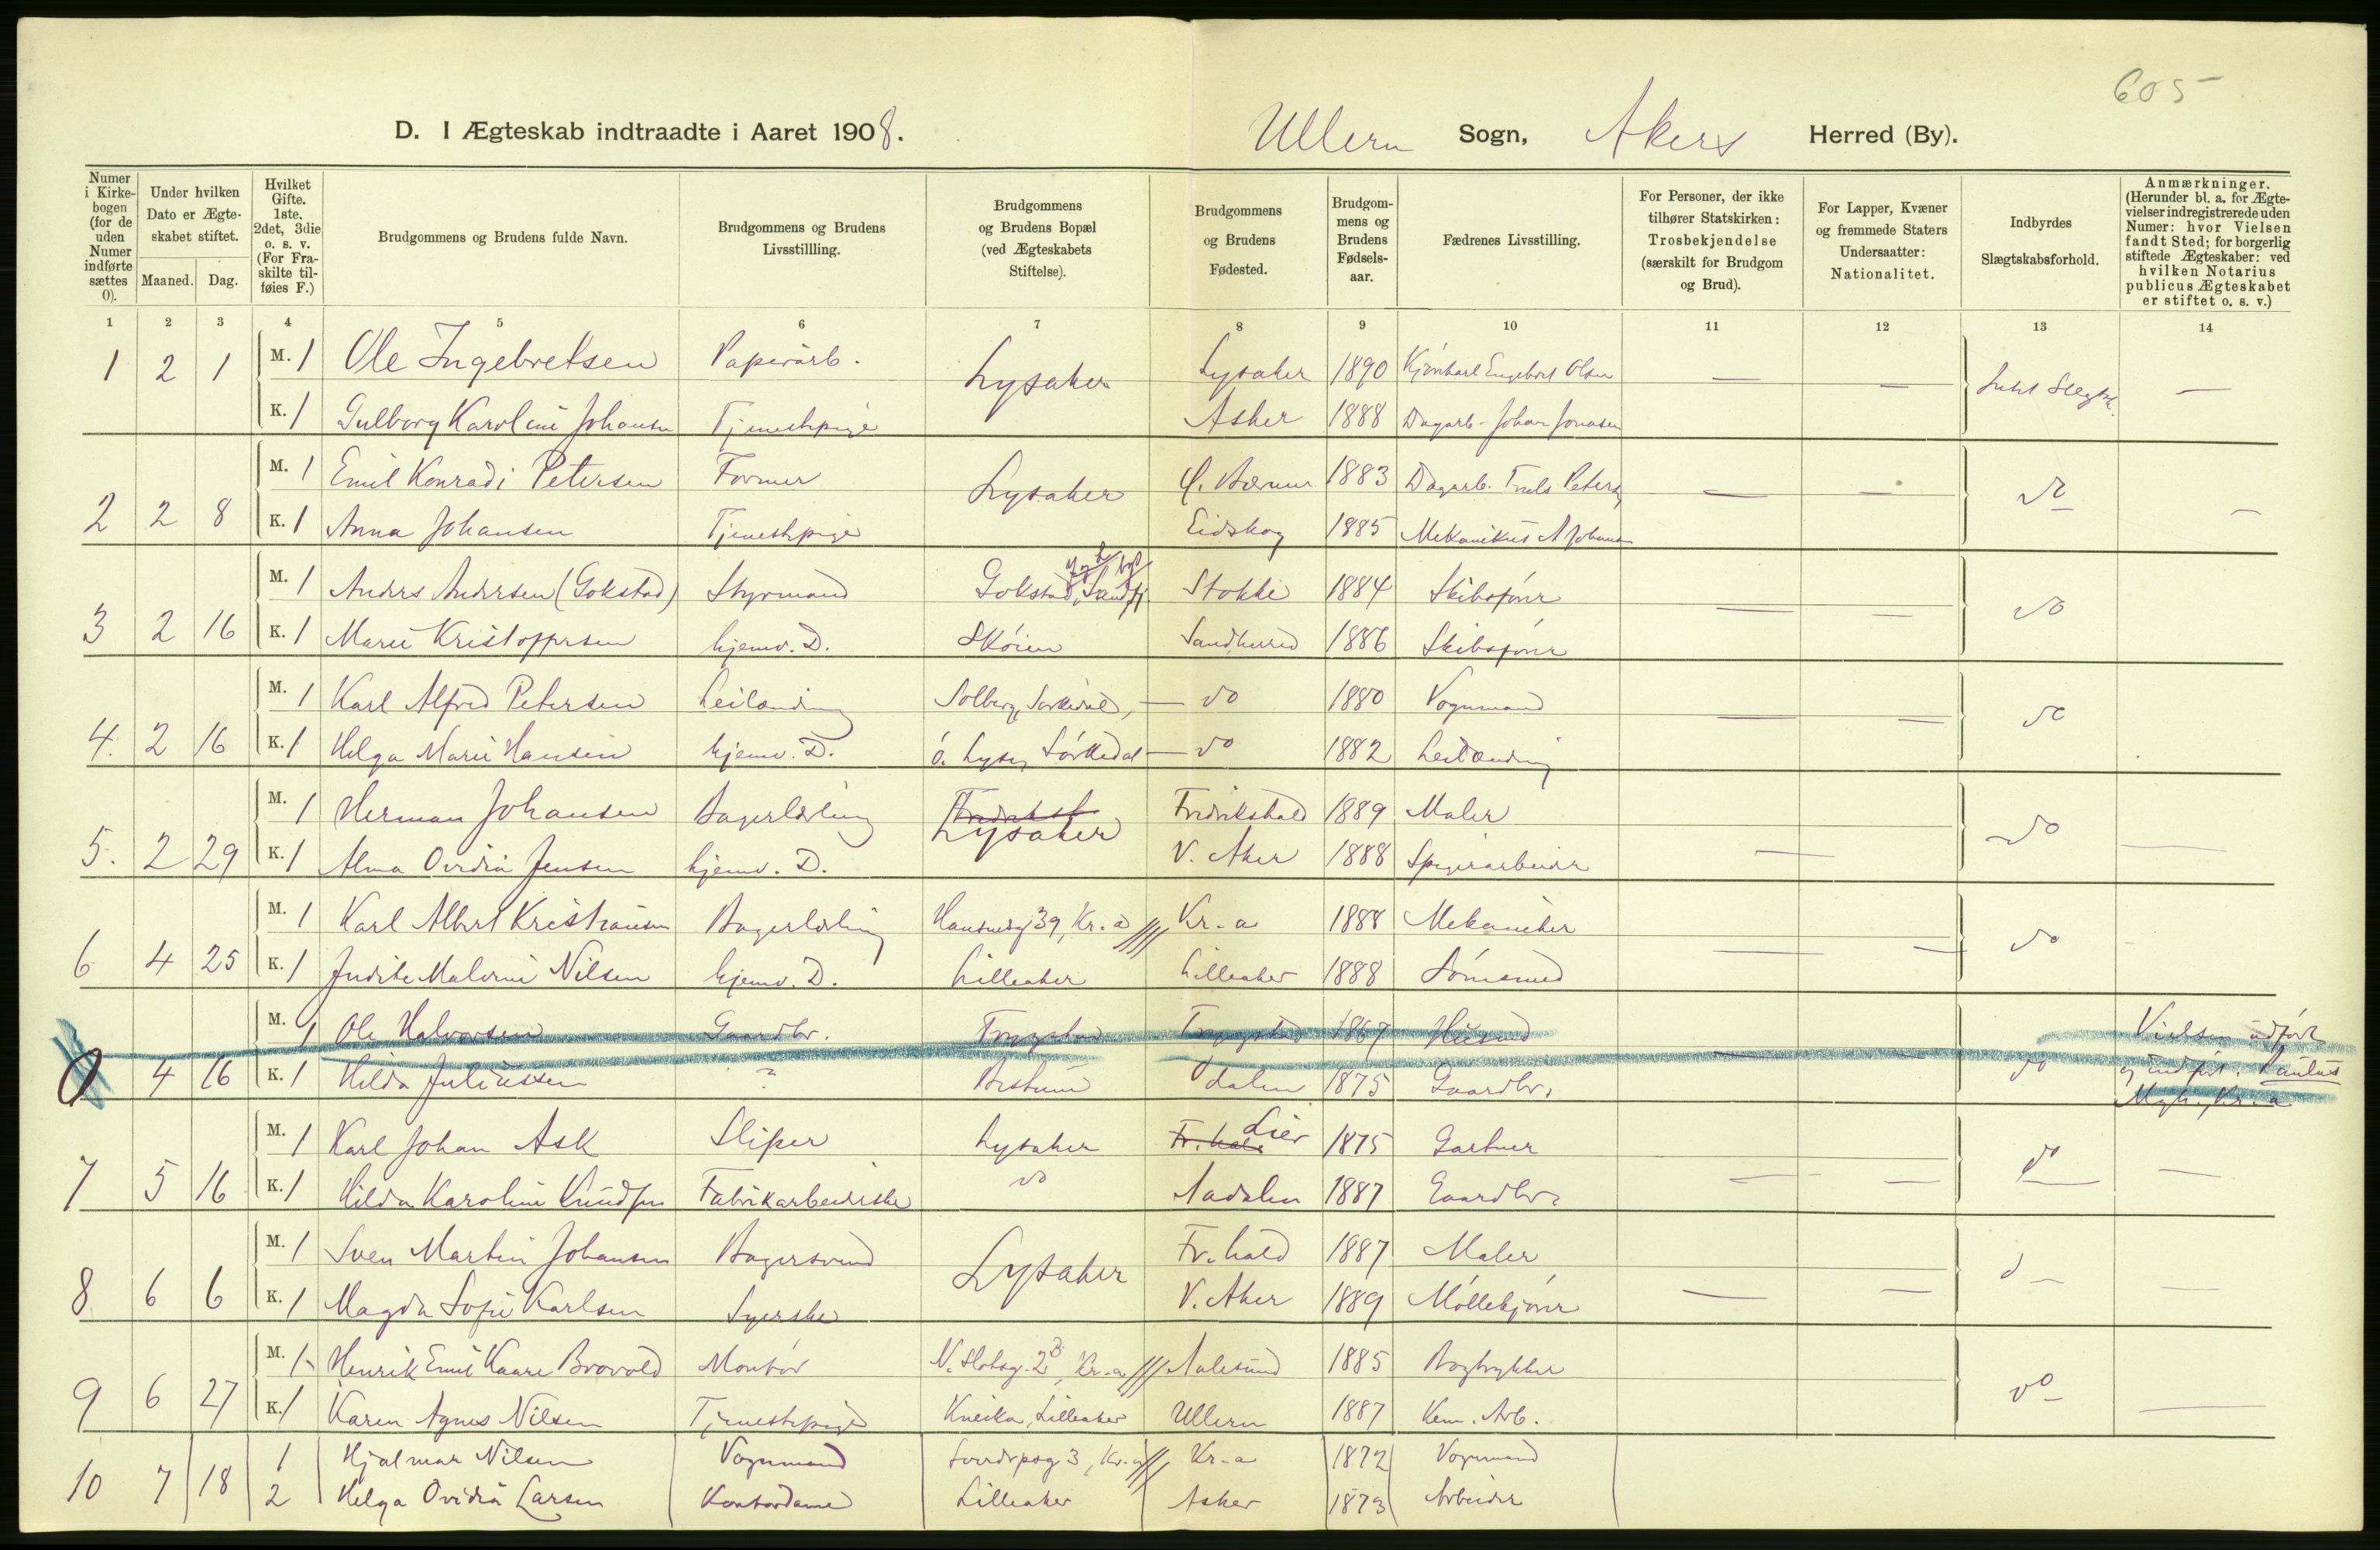 605
D. I Ægteskab indtraadte i Aaret 1908. Ullern Sogn, Akers Herred (By).
Numer i Kirkebogen (for de uden Numer indførte sættes 0).
Under hvilken Dato er Ægteskabet stiftet.
Maaned. Dag.
Hvilket Gifte. 1ste, 2det, 3die o. s. v. (For Fraskilte tilføies F.)
Brudgommens og Brudens fulde Navn.
Brudgommens og Brudens Livsstillling.
Brudgommens og Brudens Bopæl (ved Ægteskabets Stiftelse).
Brudgommens og Brudens Fødested.
Brudgommens og Brudens Fødselsaar.
Fædrenes Livsstilling.
For Personer, der ikke tilhører Statskirken: Trosbekjendelse (særskilt for Brudgom og Brud).
For Lapper, Kvæner og fremmede Staters Undersaatter: Nationalitet.
Indbyrdes Slægtskabsforhold.
Anmærkninger. (Herunder bl. a. for Ægtevielser indregistrerede uden Numer: hvor Vielsen fandt Sted; for borgerlig stiftede Ægteskaber: ved hvilken Notarius publicus Ægteskabet er stiftet o. s. v.)
1 2 3 4 5 6 7 8 9 10 11 12 13 14
1 2 1 M. 1 Ole Ingebretsen Papirarb. Lysaker Lysaker 1890 Olsen — — —
K. 1 Gulborg Karoline Johansen Tjenestepige Asker 1888 Dagarb. Johan Jonasen
2 2 8 M. 1 Emil Konradi Petersen Former Lysaker Ø. Bærum 1883 Dagarb. Truls Peters — — do —
K. 1 Anna Johansen Tjenestepige Eidskog 1885 Mekanikus A Johansen
3 2 16 M. 1 Anders Andersen (Gokstad) Styrmand Gokstad, Sandfj. Stokke 1884 Skibsfører — — do
K. 1 Marie Kristoffersen hjemv. D. Skøien Sandherred 1886 Skibsfører
4. 2 16 M. 1 Karl Alfred Petersen Leilænding Solberg, Sørkedal, — do 1880 Vognmand — — do
K. 1 Helga Marie Hansen hjemv. D. Ø. Lysen Sørkedal — do 1882 Leilænding
5. 2 29 M. 1 Herman Johansen Bagerlærling Fredrikst Lysaker Fredrikshald 1889 Maler — do —
K. 1 Alma Ovidia Jensen hjemv. D. V. Aker 1888 Spigerarbeider
6 4 25 M. 1 Karl Albert Kristiansen Bagerlærling 39, Kr.a Kr.a 1888 Mekaniker — — do
K. 1 Judite Malvine Nilsen hjemv. D. Lilleaker Lilleaker 1888 Sømsmed
0 4 16 M. 1 Ole Halvorsen Gaardbr. Trøgstad Trøgstad 1867 Husmd Vielsen udført
K. 1 Hilda Juliussen ? Bestum Dalen 1875 Gaardbr. — — do og indført. Paulus
Mgh., Kr.a
7 5 16 M. 1 Karl Johan Ask Sliper Lysaker Fr.hald Lier 1875 Gartner — — do —
K. 1 Hilda Karoline Knudsen Fabrikarbeiderske do Aadalen 1887 Gaardbr.
8 6 6 M. 1 Sven Martin Johansen Bagersvend Lysaker Fr.hald 1887 Maler — — do —
K. 1 Magda Sofie Karlsen Syerske V. Aker 1889 Møllekjører
9 6 27 M. 1 Henrik Emil Kaare Brovold Montør N. Slotsg. 2B, Kr.a Aalesund 1885 Bogtrykker do —
K. 1 Karen Agnes Nilsen Tjenestepige Kneika, Lilleaker Ullern 1887 Kem. Arb.
10 7 18 1 Hjalmar Nilsen Vognmand Sverdrpsg 3, Kr.a Kr.a 1872 Vognmand
2 Helga Ovidia Larsen Kontordame Lilleaker Asker 1873 Arbeider